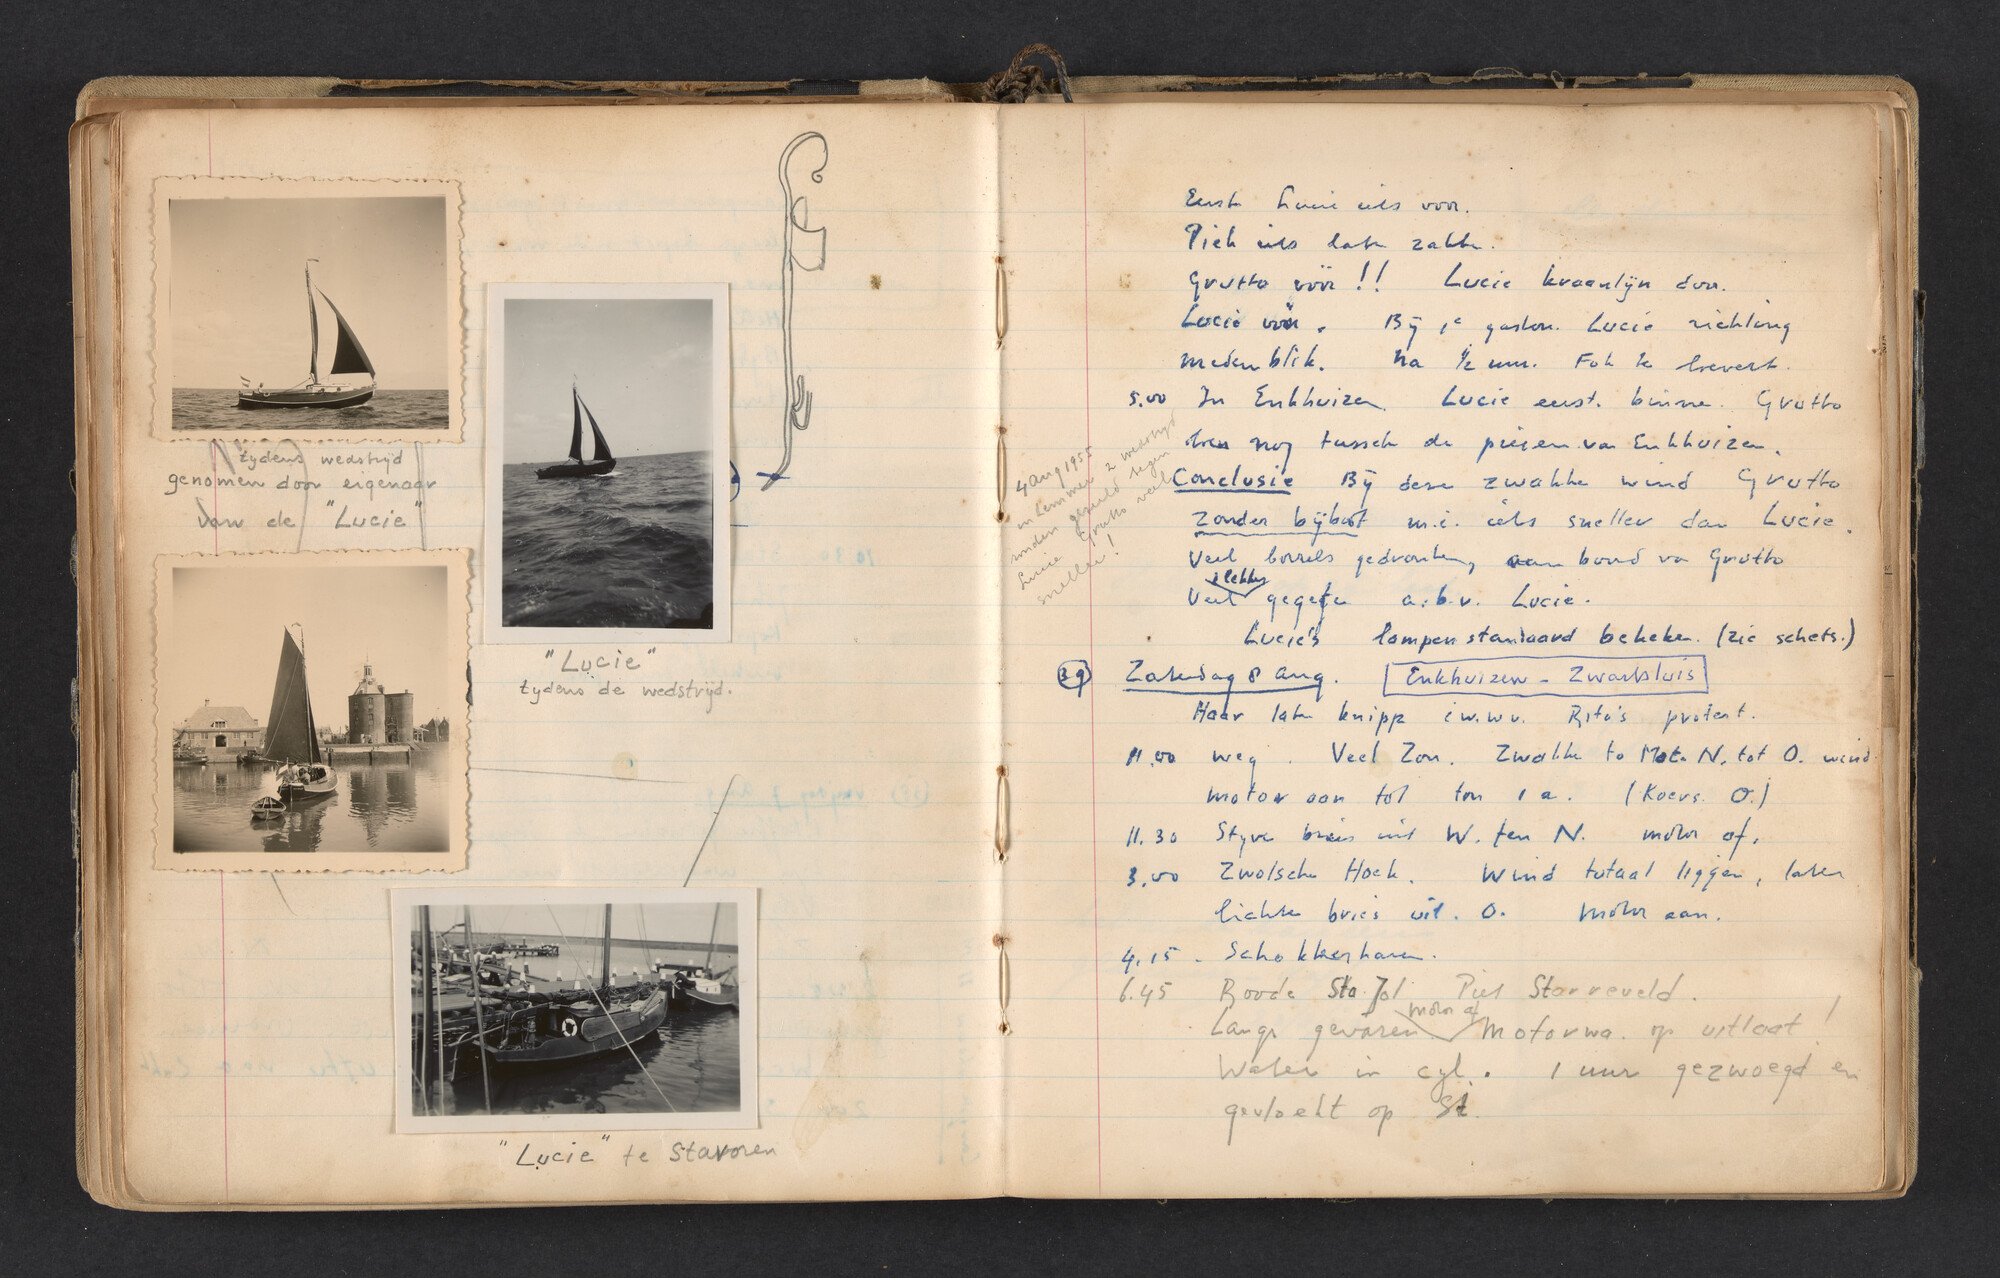 tydens wedstrijd
genomen door eigenaar
van de "Lucie"
"Lucie"
tydens de wedstrijd.
"Lucie" te Stavoren
Eerst Lucie iets voor.
Piek iets laten zakken.
Grutto vóór!! Lucie kraanlijn door.
Lucie vóór. Bij 1e gaston. Lucie richting
Medenblik. Na 1/2 uur. Fok te
5.00 In Enkhuizen. Lucie eerst binnen. Grutto
nog tussch de pieren van Enkhuizen.
4 Aug 1955
in Lemmer 2 wedstrijd
tegen
Lucie Grutto veel
sneller!
Conclusie Bij deze zwakke wind Grutto
zonder bijboot m.i. iets sneller dan Lucie.
Veel borrels gedronken, aan boord va Grutto
Veel lekker gegeten a.b.v. Lucie.
Lucie's lampenstandaard bekeken. (zie schets.)
39 Zaterdag 8 Aug. Enkhuizen - Zwartsluis
Haar laten knippen i.w.w.v. Rita's protest.
11.00 weg. Veel Zon. Zwakke to Mat. N. tot O. wind
motor aan tot ton 1 a. (Koers. O.)
11.30 Styve bries uit W. ten N. motor af.
3.00 Zwolsche Hoek. Wind totaal liggen, later
lichte bries uit. O. Motor aan.
4.15 - Schokkerhaven.
6.45 Roode Sta. Jol Piet Starreveld.
Langs gevaren motor af Motorwa. op uitlaat!
Water in cyl. 1 uur gezwoegd en
gevloekt op St.